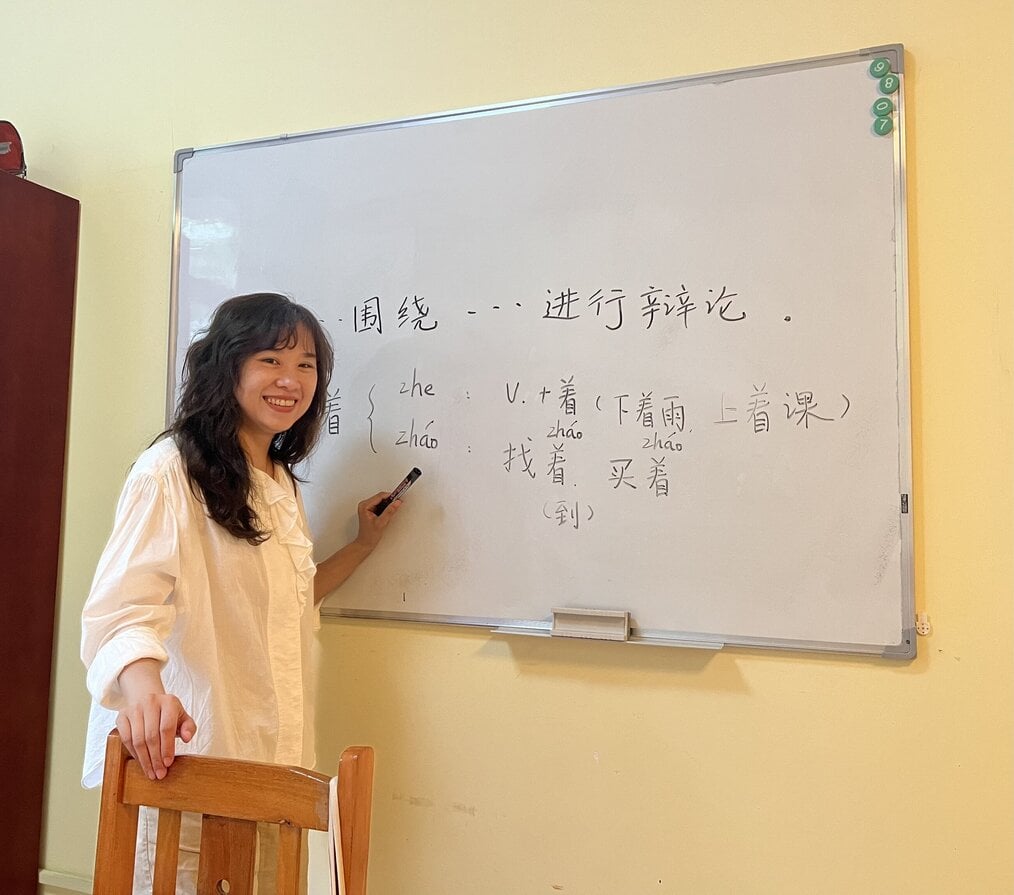 ··围绕 ··· 进行辩论.
着 { zhe : V. + 着 (下着雨, 上着课)
zháo zháo
zháo : 找着. 买着
(到)
9
8
0
7